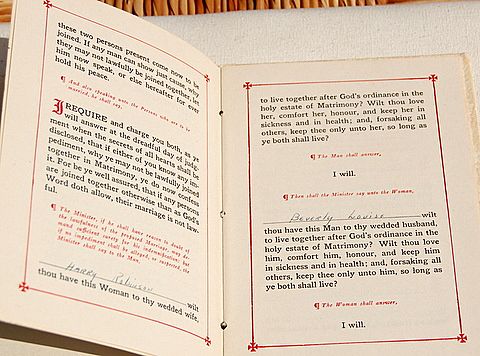 these two persons present come now to be
joined. If any man can show just cause, why
they may not lawfully be joined together, let
him now speak, or else hereafter for ever
hold his peace.
¶ And also speaking unto the Persons who are to be
married, he shall say,
I REQUIRE and charge you both, as ye
will answer at the dreadful day of judg-
ment when the secrets of all hearts shall be
disclosed, that if either of you know any im-
pediment, why ye may not be lawfully joined
together in Matrimony, ye do now confess
it. For be ye well assured, that if any persons
are joined together otherwise than as God's
Word doth allow, their marriage is not law-
ful.
¶ The Minister, if he shall have reason to doubt of
the lawfulness of the proposed Marriage, may de-
mand sufficient surety for his indemnification:
if no impediment shall be alleged, or suspected, the
Minister shall say to the Man,
Harry Robinson wilt
thou have this Woman to thy wedded wife,
to live together after God's ordinance in the
holy estate of Matrimony? Wilt thou love
her, comfort her, honour, and keep her in
sickness and in health; and, forsaking all
others, keep thee only unto her, so long as
ye both shall live?
¶ The Man shall answer,
I will.
¶ Then shall the Minister say unto the Woman,
Beverly Louise wilt
thou have this Man to thy wedded husband,
to live together after God's ordinance in the
holy estate of Matrimony? Wilt thou love
him, comfort him, honour, and keep him
in sickness and in health; and, forsaking all
others, keep thee only unto him, so long as
ye both shall live?
¶ The Woman shall answer,
I will.